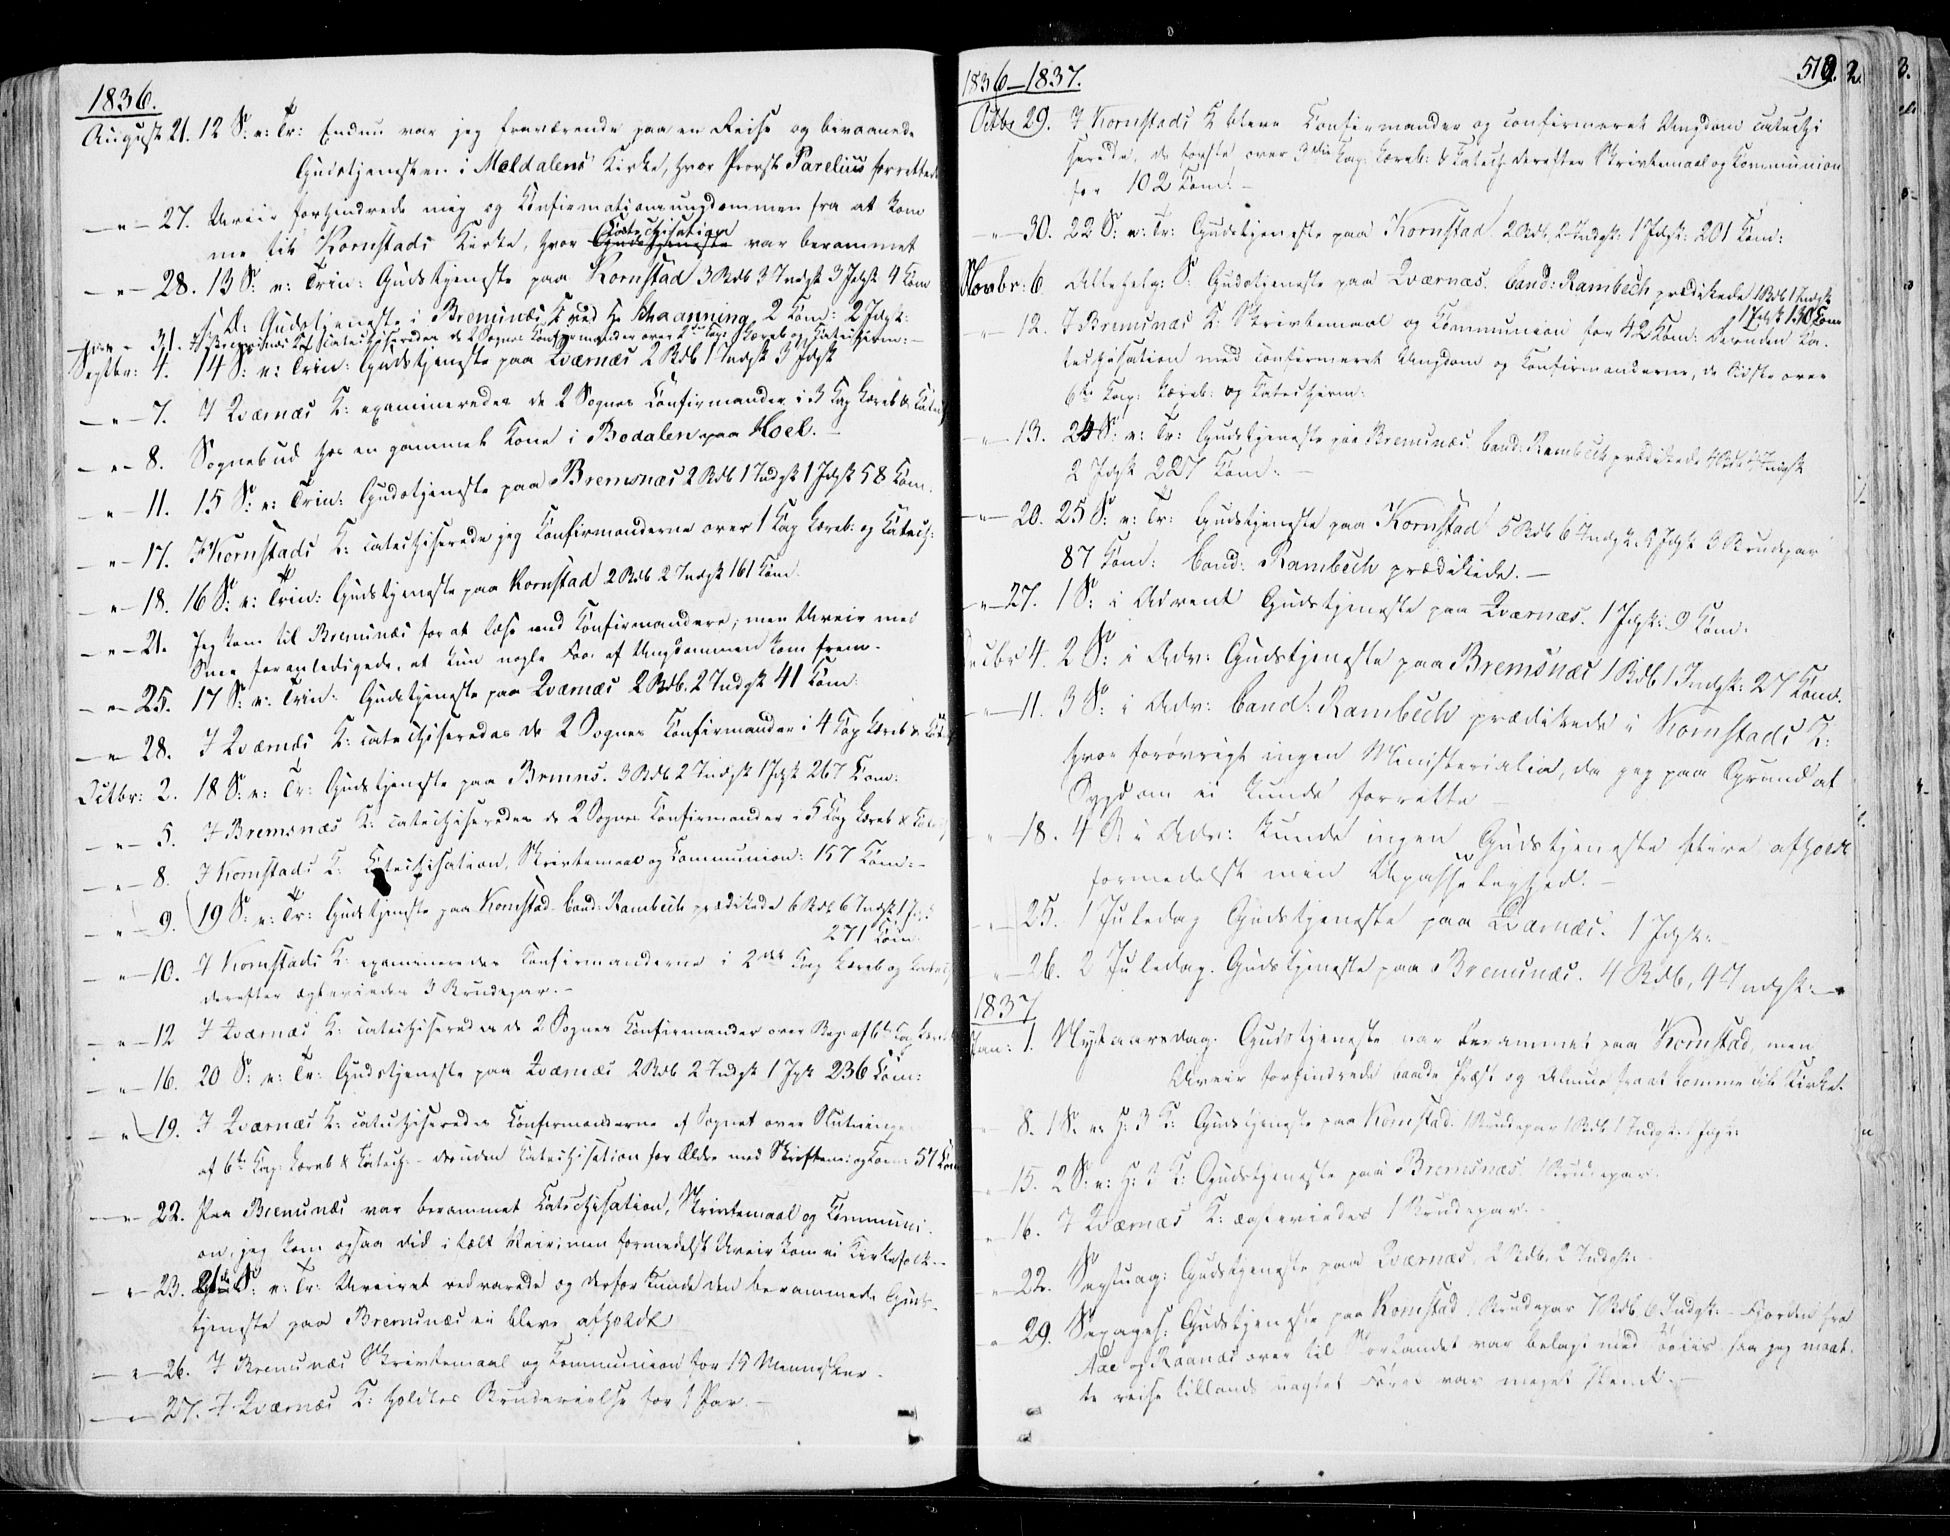 1836.
August 21. 12 S: e: Tr: Endnu var jeg fraværende paa en Reise og bivaanede
Gudstjenesten i Meldalens Kirke, hvor Provst Parelius forrettede
-"- 27. Uveir forhindrede mig og Confirmationsungdommen fra at kom
me til Kornstads Kirke, hvor Catechisation var berammet
-"- 28. 13 S: e: Trin: Gudstjeneste paa Kornstad 3 Rdb 3 Indgsk 3 Jdgsk 4 Com
s. D: Gudstjeneste i Bremsnæs K ved Hr Schaanning, 2 Com: 2 Jdgsk:
31. I Bremsnæs K: catechiseredes de 2 Sognes Confirmander over 2det Cap: Læreb: og Catechism:
Septbr: 4. 14 S: e: Trin: Gudstjeneste paa Qværnæs 2 Rdb 1 Indgsk 3 Jdgsk
-"- 7. I Qværnæs K: examineredes de 2 Sognes Confirmander i 3 Kap Læreb & Catech
-"- 8. Sognebud hos en gammel Kone i Bodalen paa Hoel.
-"- 11. 15 S: e: Trin: Gudstjeneste paa Bremsnæs 2 Rdb 1 Indgsk 1 Jdgsk 58 Com.
-"- 17. I Kornstads K: catechiserede jeg Confirmanderne over 1 Kap Læreb: og Catech:
-"- 18. 16 S: e: Trin: Gudstjeneste paa Kornstad 2 Rdb 2 Indgsk 161 Com.
-"- 21. Jeg kom til Bremsnæs for at læse med Confirmandere; men Uveir med
Snee foranledigede, at kun nogle Faa af Ungdommen kom frem.
-"- 25. 17 S: e: Trin: Gudstjeneste paa Qværnæs 2 Rdb. 2 Indgsk 41 Com:
-"- 28. I Qværnæs K: catechiseredes de 2 Sognes Confirmander i 4 Kap Læreb &
Octbr: 2. 18 S: e: Tr: Gudstjeneste paa Bremns. 3 Rdb 2 Indgsk 1 Jdgsk 267 Com:
-"- 5. I Bremsnæs K: catechiseredes de 2 Sognes Confirmander i 5 Kap Læreb &
-"- 8. I Kornstads K: Catechisation, Skriftemaal og Communion: 157 Com:
-"- 9. 19 S: e: Tr: Gudstjeneste paa Kornstad. Cand: Rambech prædikede 6 Rdb 6 Indgsk 1
271 Com:
-"- 10. I Kornstads K: examineredes Confirmanderne i 2det Kap Læreb og
derefter ægteviedes 3 Brudepar.
-"- 12 I Qværnæs K: catechiseredes de 2 Sognes Confirmander over Beg: af 6te Cap
-"- 16. 20 S: e: Tr: Gudstjeneste paa Qværnæs 2 Rdb 2 Indgsk 1 Jgsk 236 Com:
-"- 19. I Qværnæs K: catechiseredes Confirmanderne af Sognet over Slutningen
af 6te Cap: Læreb & Catech: desuden Catechisation for Ældre med Skriftem: og Com: 51 Com
-"- 22. Paa Bremsnæs var berammet Catechisation, Skriftemaal og Communi
on; jeg kom ogsaa did i taalt Veir; men formedelst Uveir kom ei Kirkefolk.
-"- 23. 21de S: e: Tr: Uveiret vedvarede og derfor kunde den berammede Guds-
tjeneste paa Bremsnæs ei blive afholdt
-"- 26. I Bremsnæs Skriftemaal og Communion for 15 Mennesker.
-"- 27. I Qværnæs K: holdtes Brudevielse for 1 Par.
1836-1837.
512.
Octbr 29. I Kornstads K bleve Confirmander og confirmeret Ungdom catechi
serede, de første over 3die Cap: Læreb: & Catech: derefter Skriftemaal og Communion
for 102 Com:
-"- 30. 22 S: e: Tr: Gudstjeneste paa Kornstad. 2 Rdb, 2 Indgsk: 1 Jdgsk: 201 Com:
Novbr: 6 Allehelg: S: Gudstjeneste paa Qværnæs. Cand: Rambech prædikede 1 Rdb 1 Indgsk
1 Jdgsk 130 Com
-"- 12. I Bremsnæs K: Skriftemaal og Communion for 42 Com: desuden Ca-
techisation med confirmeret Ungdom og Confirmanderne, de Sidste over
6te Cap: Læreb: og Catechism:
-"- 13. 24 S: e: Tr: Gudstjeneste paa Bremsnæs. Cand: Rambech prædikede 4 Rdb 4 Indgsk
2 Jdgsk 227 Com:
-"- 20. 25 S: e: Tr: Gudstjeneste paa Kornstad 5 Rdb 6 Indgsk 1 Jdgsk 3 Brudepar
87 Com: Cand: Rambech prædikede.
-"- 27. 1 S: i Advent Gudstjeneste paa Qværnæs. 1 Jdgsk: 9 Com:
Decbr 4. 2 S: i Adv: Gudstjeneste paa Bremsnæs 1 Rdb 1 Indgsk: 27 Com:
-"- 11. 3 S: i Adv: Cand: Rambech prædikede i Kornstads K:
hvor forøvrigt ingen Ministerialia, da jeg paa Grund af
Sygdom ei kunde forrette
-"- 18. 4 S: i Adv: kunde ingen Gudstjeneste blive afholdt
formedelst min Upasselighed.
-"- 25. 1 Juledag Gudstjeneste paa Qværnæs. 1 Jdgsk:
-"- 26. 2 Juledag. Gudstjeneste paa Bremsnæs. 4 Rdb, 4 Indgsk:
1837
Jan: 1. Nytaarsdag. Gudstjeneste var berammet paa Kornstad, men
Uveir forhindrede baade Præst og Almue fra at komme til Kirke.
8. 1 S: e: H: 3 K: Gudstjeneste paa Kornstad. 1 Brudepar 1 Rdb 1 Indgsk: 1 Jdgsk:
-"- 15. 2 S: e: H: 3 K: Gudstjeneste paa Bremsnæs. 1 Brudepar.
-"- 16. I Qværnæs K: ægteviedes 1 Brudepar.
-"- 22. Septuag: Gudstjeneste paa Qværnæs, 2 Rdb. 2 Indgsk:
-"- 29. Sexages: Gudstjeneste paa Kornstad 1 Brudepar 7 Rdb 6 Indgsk: Fjorden fra
Aae og Raanæs over til Storlandet var belagt med Søeiis, saa jeg maat-
te reise tillands uagtet Føret var meget slemt.